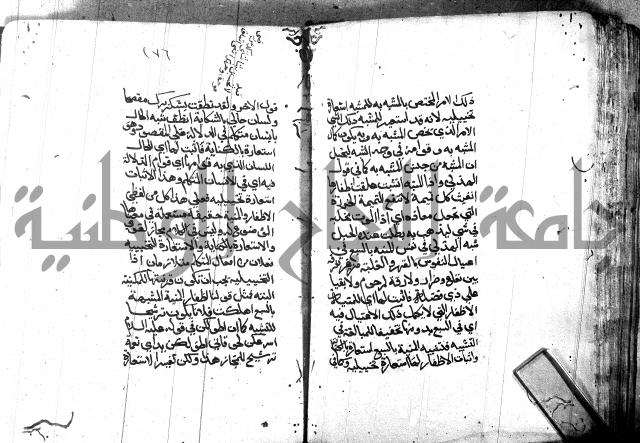 ذلك الامر المختص بالمشبه به للمشبه استعارة
تخييلية لانه قد استعير للمشبه ذلك
الامر الذي يخص المشبه به وبه يكون كمال
المشبه به او قوامه في وجه الشبه ليخيل
ان المشبه من جنس المشبه به كما في قول
الهذلي واذا المنية انشبت اظفارها
الفيت كل تميمة لا تنفع التميمة الخرزة
التي تجعل معاذة اي اذا الموت مخلبه
في شيء ليذهب به بطلت عنده الحيل
شبه الهذلي في نفس المنية بالسبع في
اغتيال النفوس بالقهر والغلبة من غير تفرقة
بين نفاع وضرار ولا رقة لمرحوم ولا بقيا
على ذي فضيلة فاثبت لها اي للمنية
الاظفار التي لا يكمل ذلك الاغتيال فيه
اي في السبع بدونها تحقيقا للمبالغة في
التشبيه فتشبيه المنية بالسبع استعارة بالكناية
واثبات الاظفار لها استعارة تخييلية وكما في
١٧٦
قول الاخر ولئن نطقت بشكر برك مفصحا
ولسان حالي بالشكاية انطق شبه الحال
بانسان متكلم في الدلالة على المقصود وهو
استعارة بالكناية فاثبت لها اي للحال
اللسان الذي به قوامها اي قوام الدلالة
فيه اي في الانسان المتكلم وهذا الاثبات
استعارة تخييلية فعلى هذا كل من لفظي
الاظفار والمنية حقيقة مستعملة في معناها
الموضوع له وليس في الكلام مجاز لغوي
والاستعارة بالكناية والاستعارة التخييلية
فعلان من افعال المتكلم متلازمان اذ
التخييلية يجب ان تكون قرينة للمكنية
البتة فمثل قولنا اظفار المنية الشبيهة
بالسبع اهلكت فلانا يكون ترشيحا
للتشبيه كما ان اطولكن في قوله عليه السلام
اسرعكن لحوقا بي اطولكن يدا اي نعمة
ترشيح للمجاز هذا ولكن تفسير الاستعارة
جامعة النجاح الوطنية